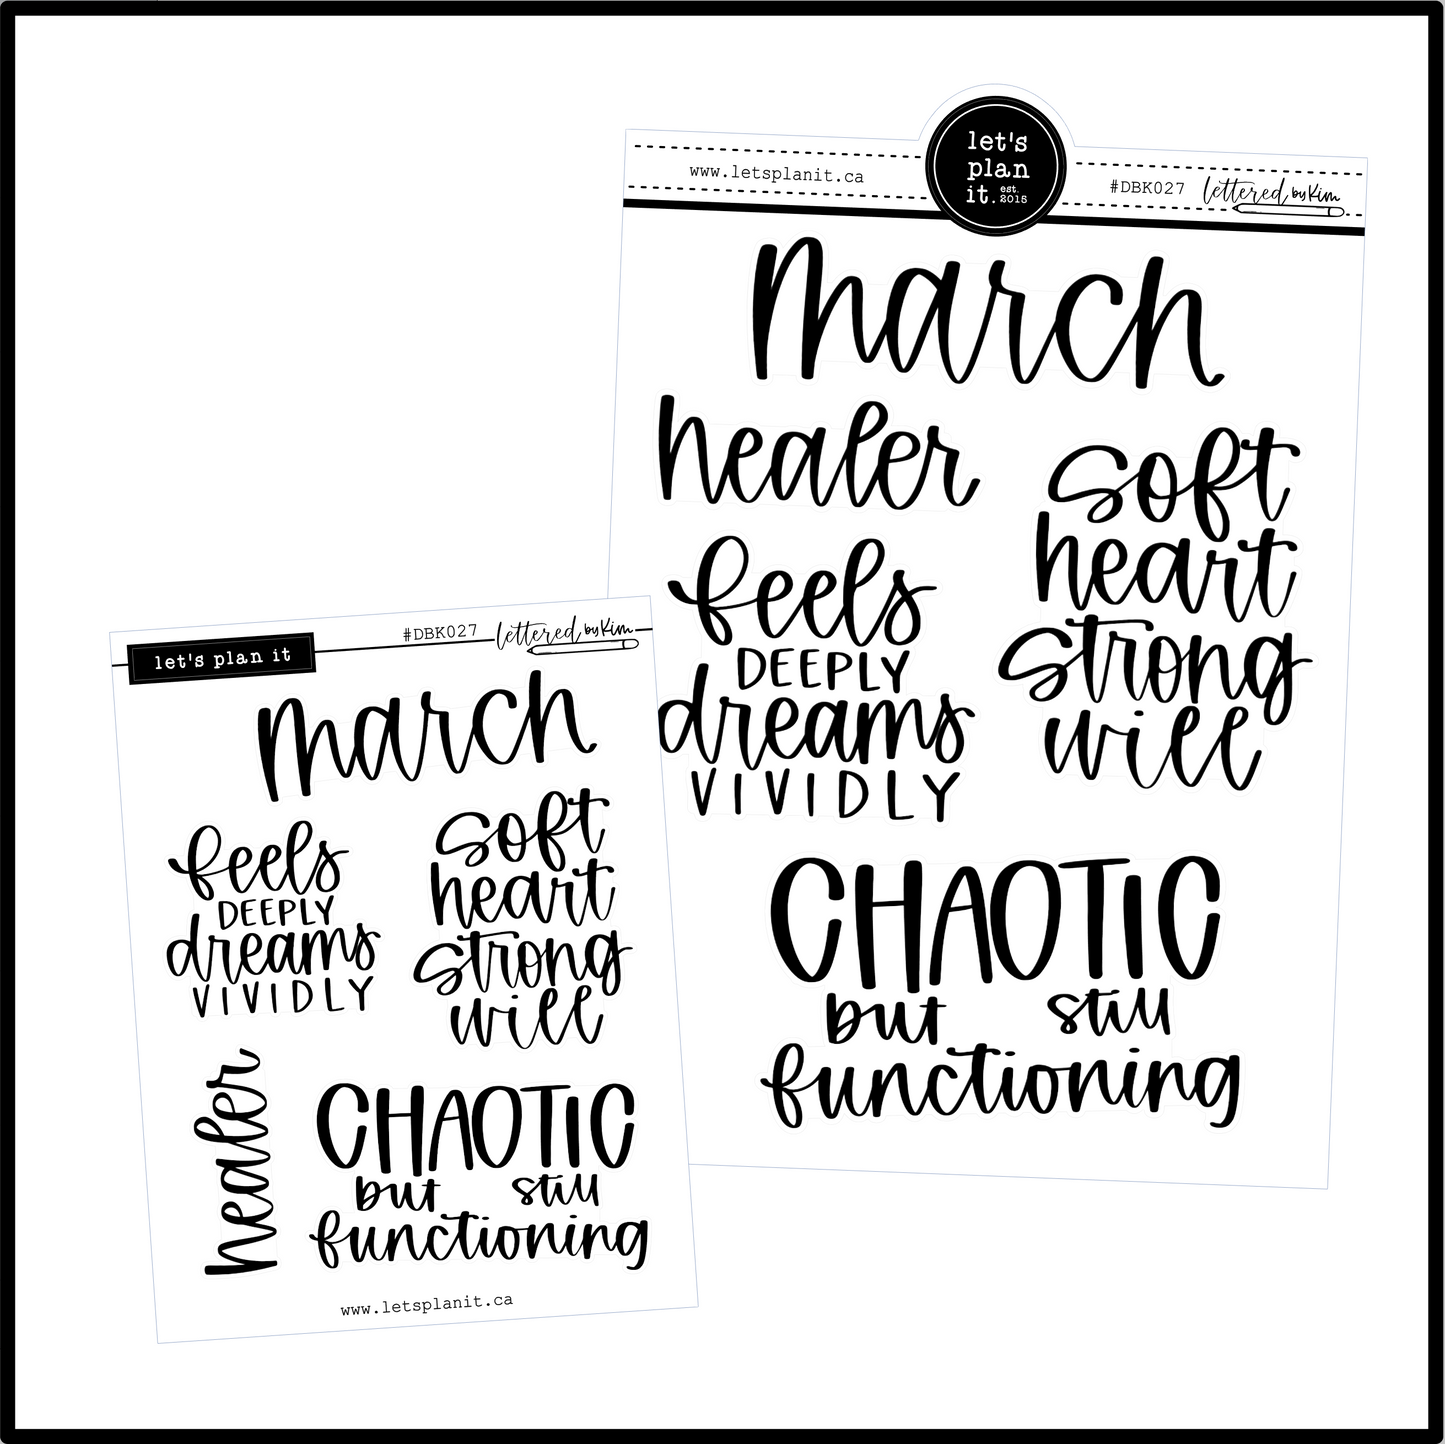 let's
plan
it. est. 2015
www.letsplanit.ca
#DBK027 lettered by Kim
march
healer
feels
DEEPLY
dreams
VIVIDLY
soft
heart
strong
will
CHAOTIC
but still
functioning
let's plan it
#DBK027 lettered by Kim
march
feels
DEEPLY
dreams
VIVIDLY
soft
heart
strong
will
healer
CHAOTIC
but still
functioning
www.letsplanit.ca